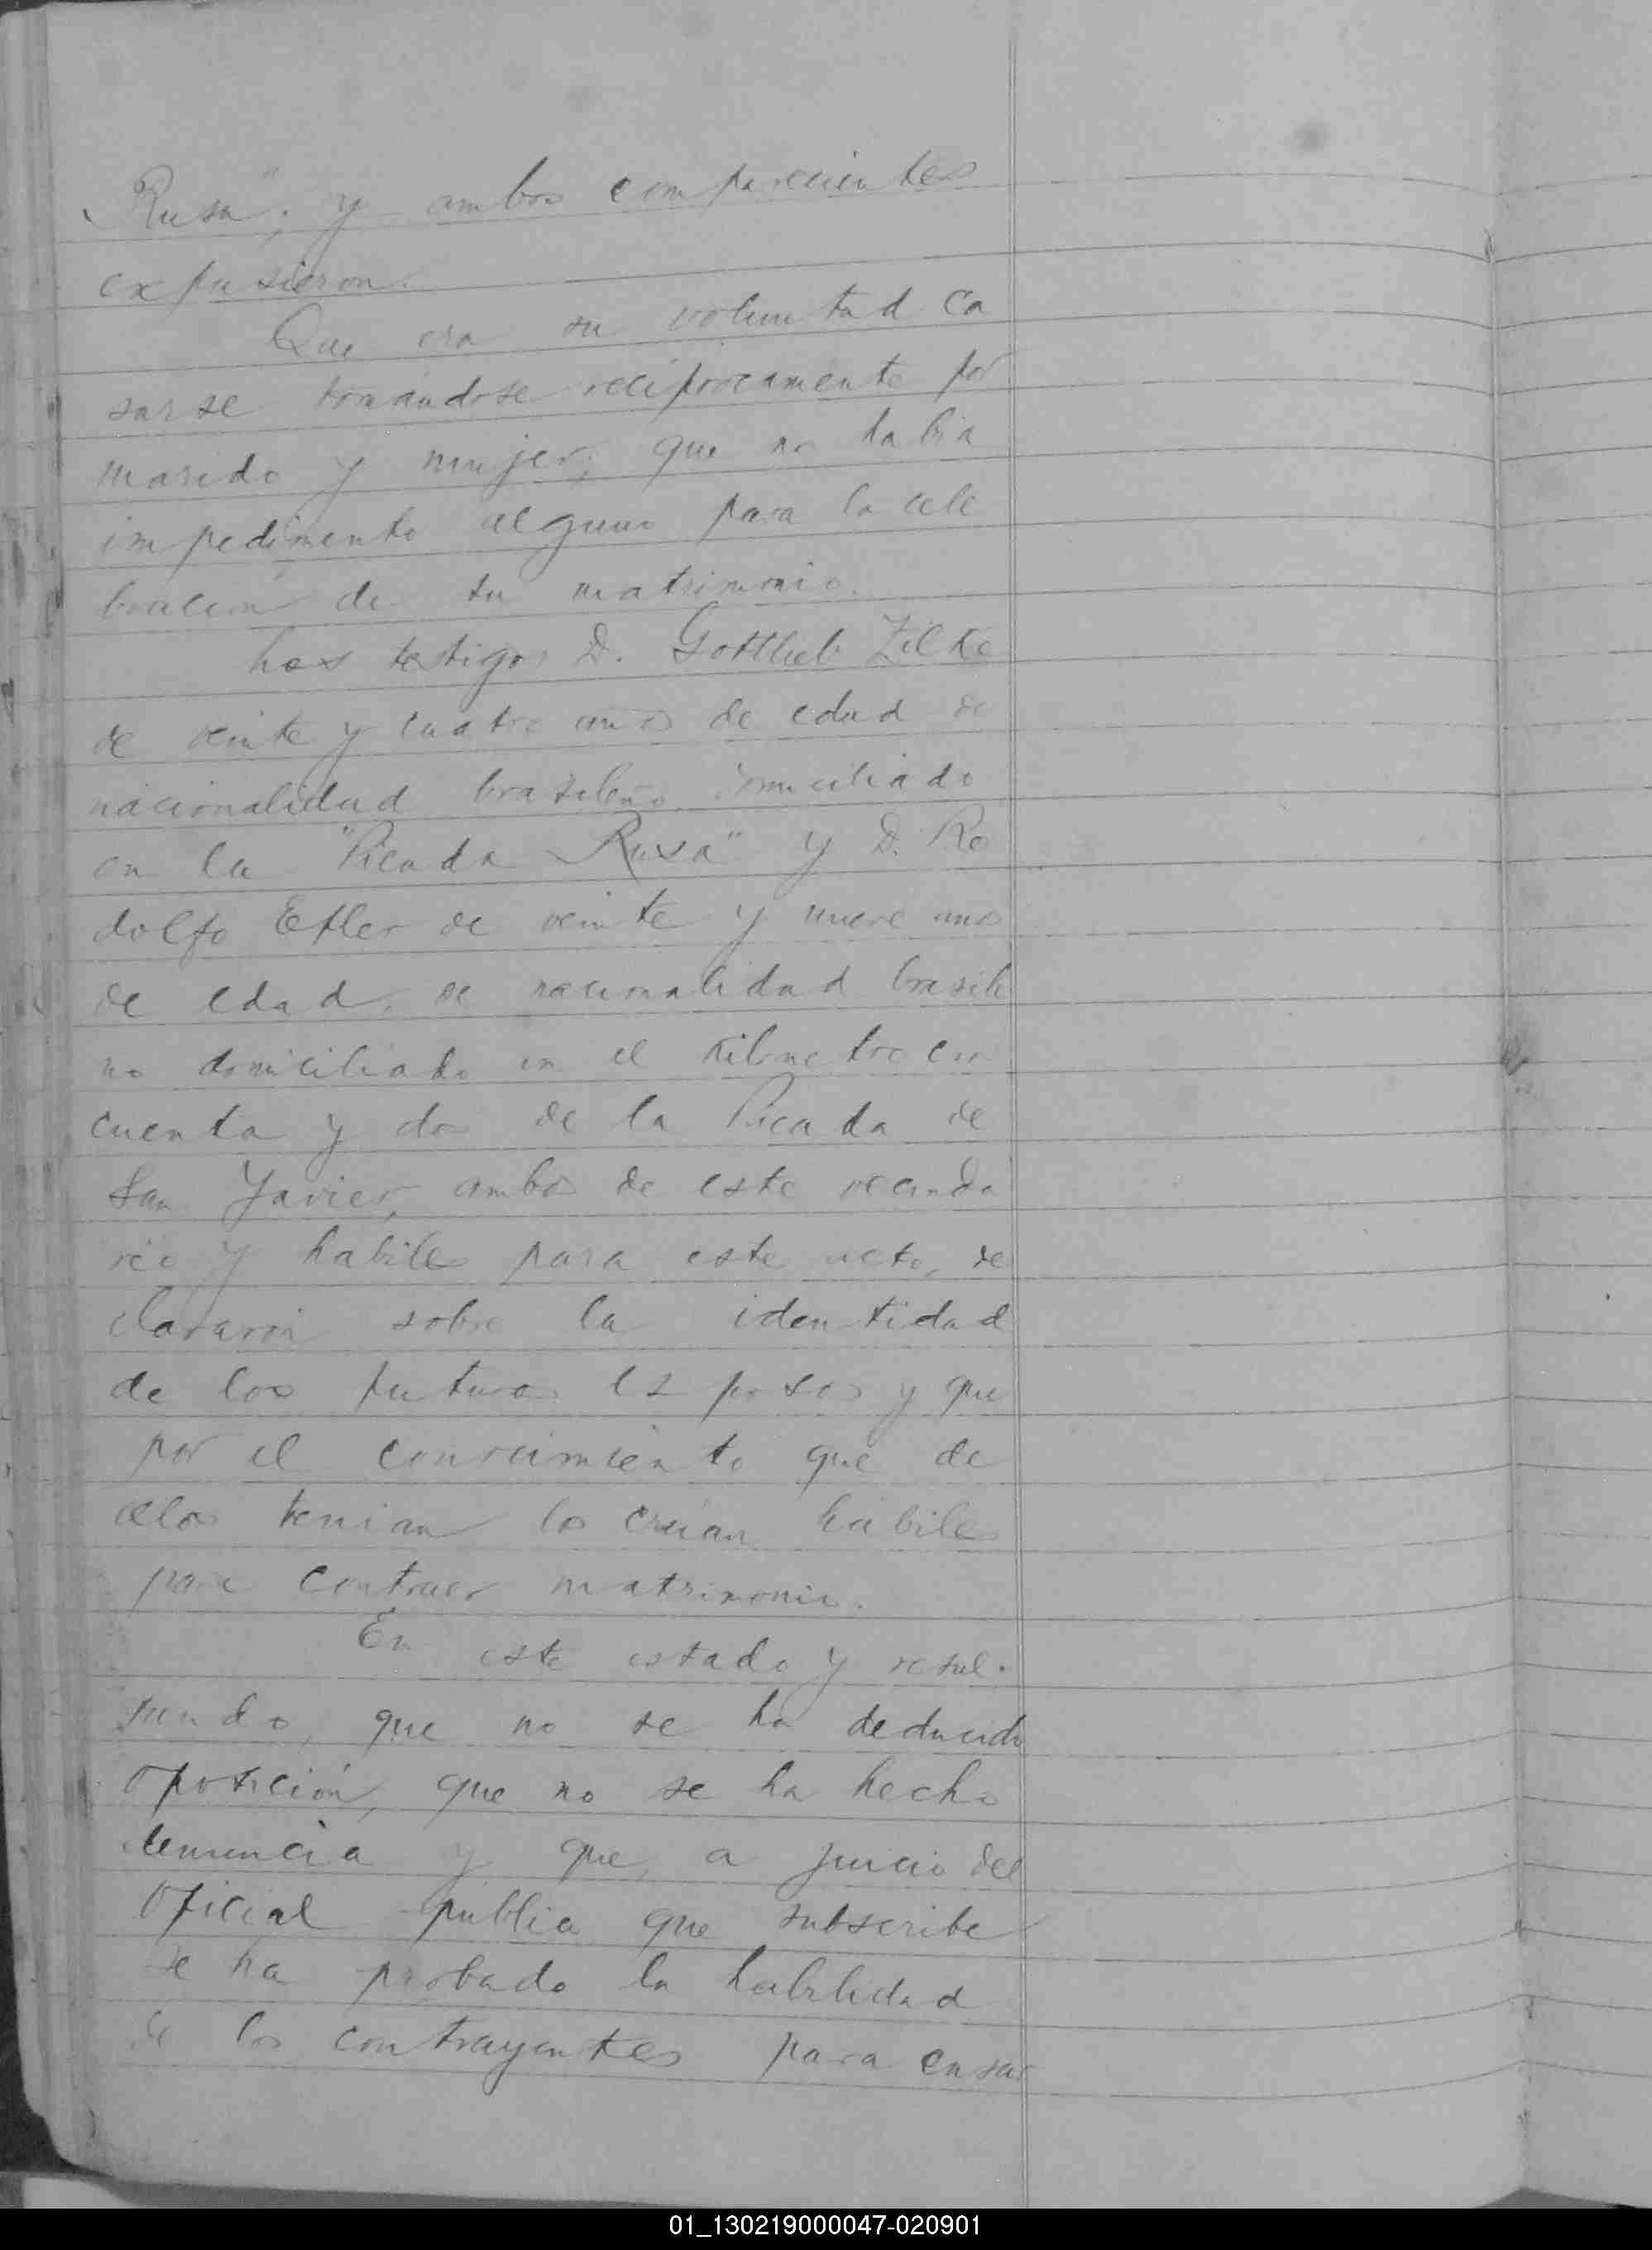 Rusa"; y ambos comparecientes
expusieron:
Que era su voluntad ca
sarse tomándose recíprocamente por
marido y mujer; que no había
impedimento alguno para la cele
bración de su matrimonio.
Los testigos D. Gottlieb Zilke
de veinte y cuatro años de edad de
nacionalidad brasileño, domiciliado
en la "Picada Rusa" y D. Ro
dolfo Etler de veinte y nueve anos
de edad, de nacionalidad brasile
no domiciliado en el kilometro cin
cuenta y dos de la Picada de
San Javier, ambos de este vecinda
rio y habiles para este acto, de
clararon sobre la identidad
de los futuros esposos y que
por el conocimiento que de
ellos tenian los creían hábiles
para contraer matrimonio.
En este estado y resul-
tando, que no se ha deducido
oposición, que no se ha hecho
denuncia y que, a juicio del
oficial publico que subscribe
se ha probado la habilidad
de los contrayentes para casar
01_130219000047-020901